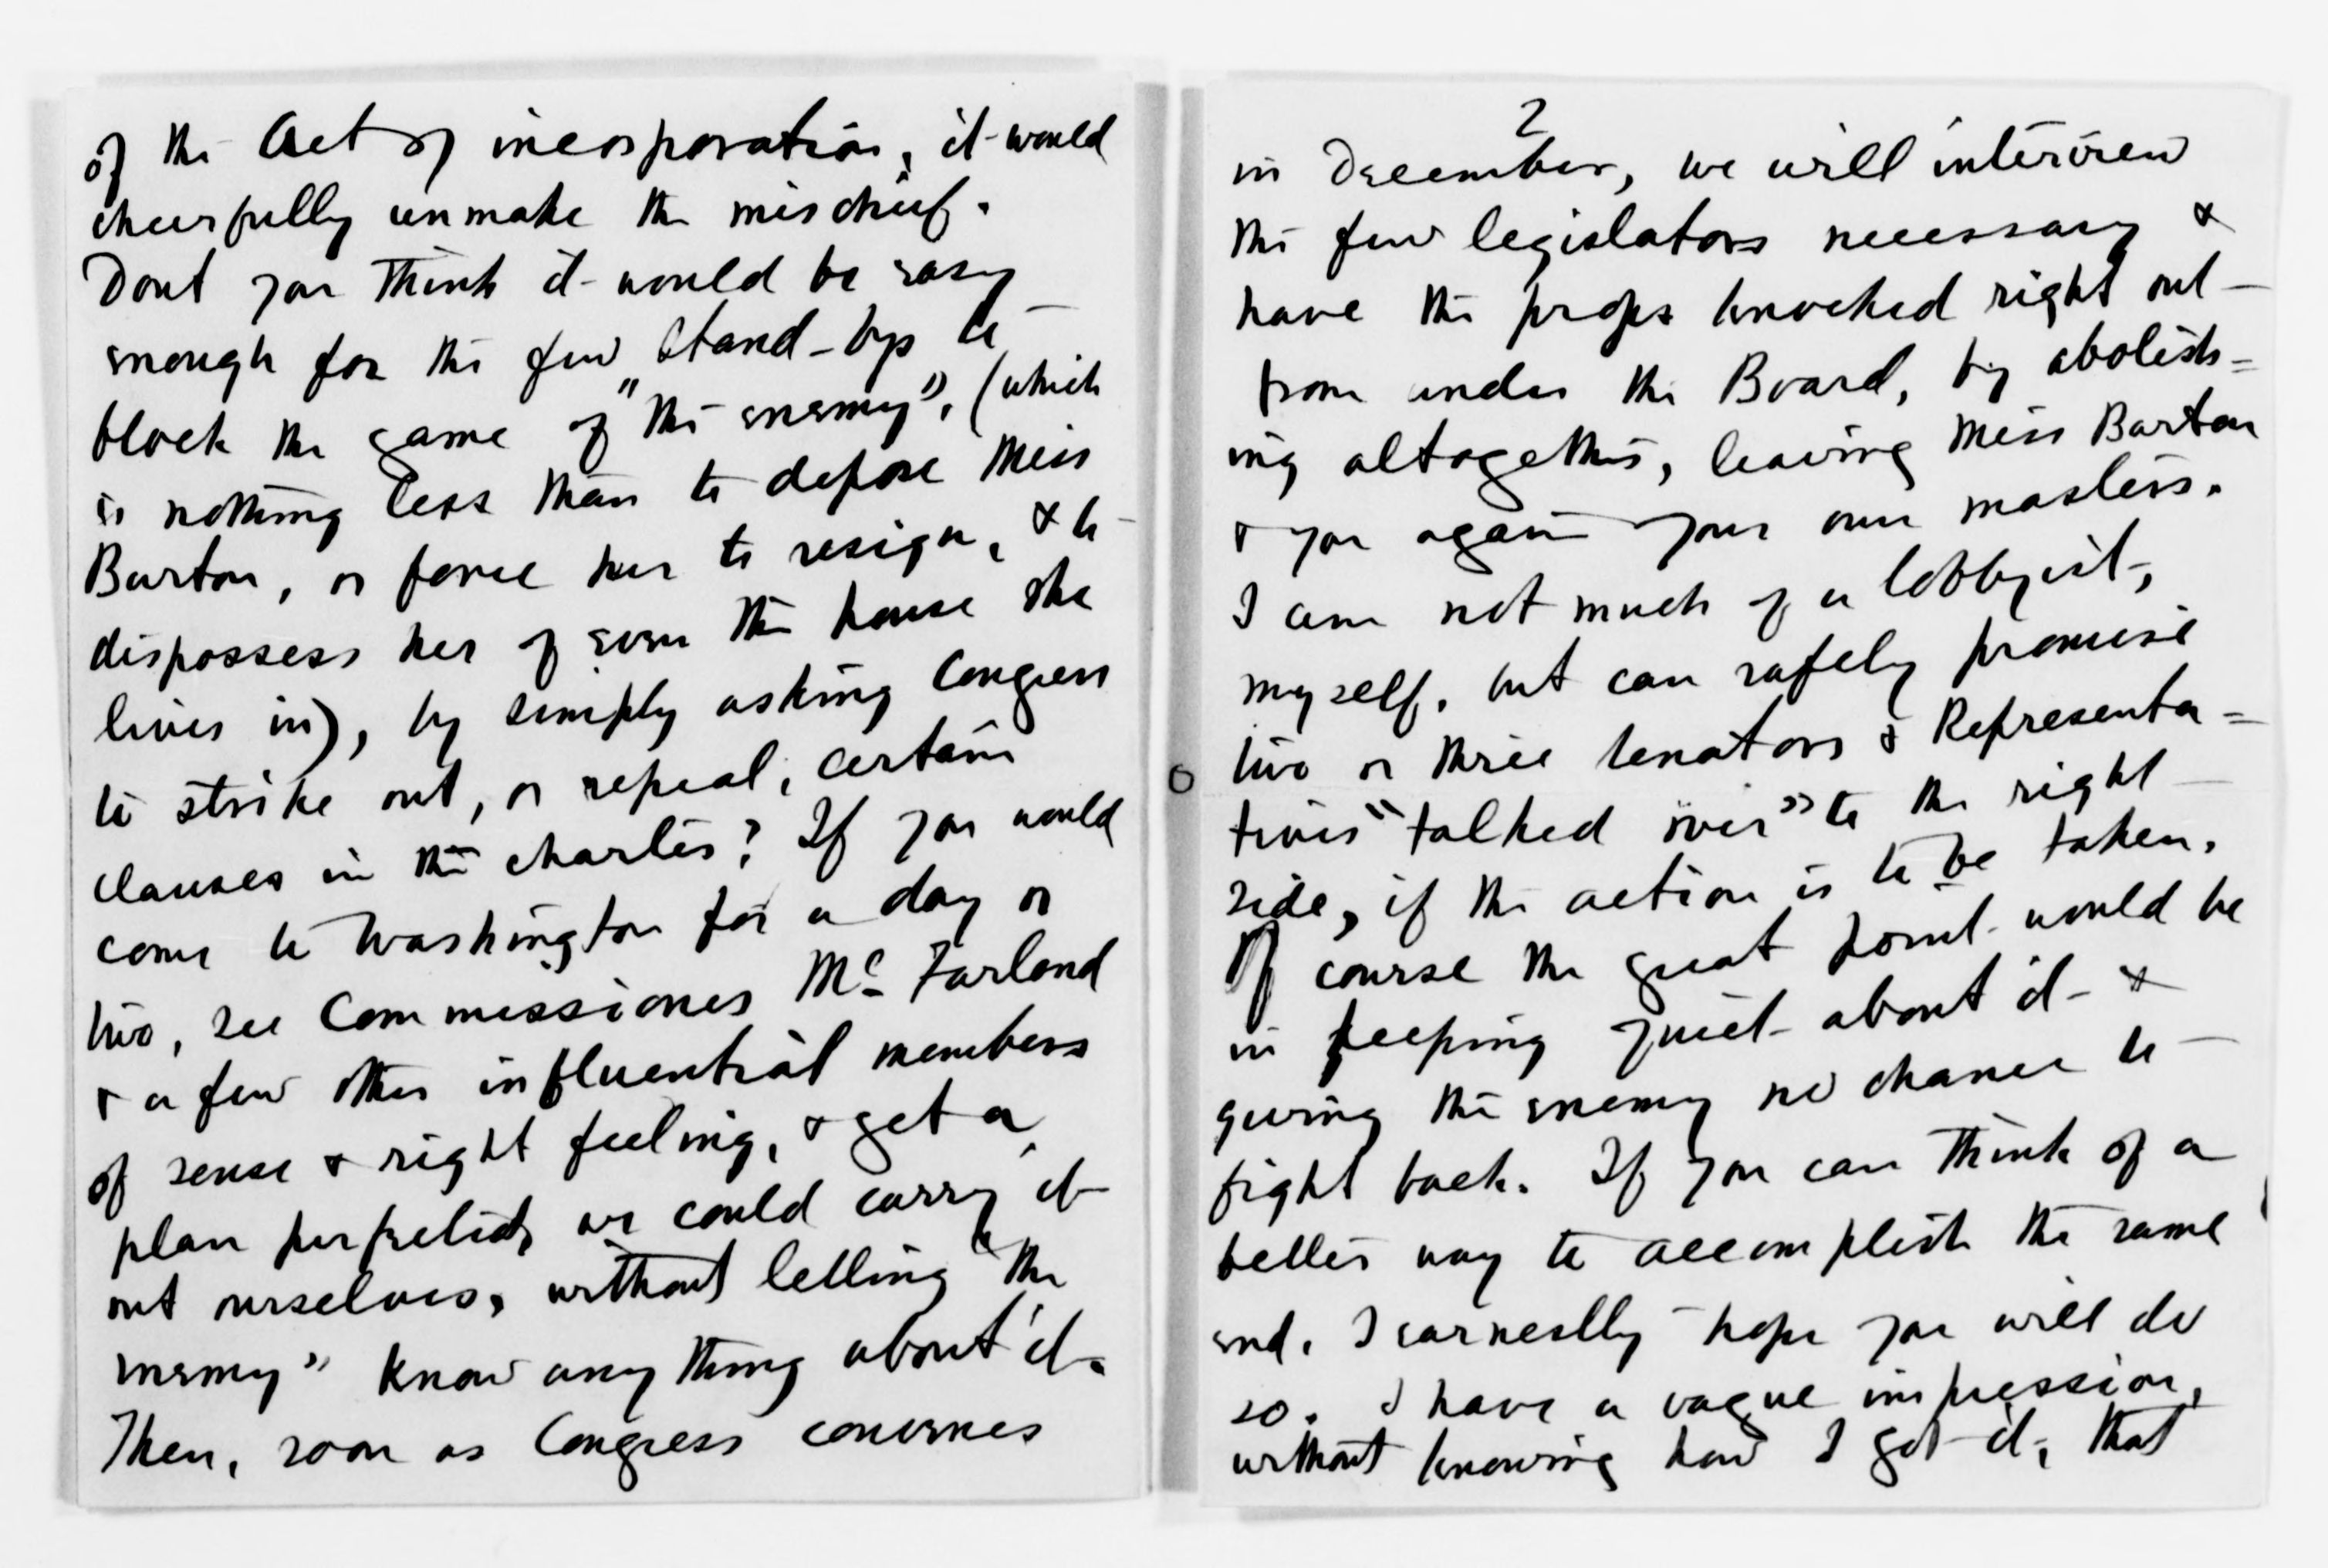 of the Act of incorporation, it would
cheerfully unmake the mischief.
Dont you think it would be easy
enough for the few stand-bys to
block the game of "the enemy", (which
is nothing less than to depose Miss
Barton, or force her to resign, & to
dispossess her of even the house she
lives in), by simply asking Congress
to strike out, or repeal, certain
clauses in the charter? If you would
come to Washington for a day or
two, see Commissioner Mc Farland
& a few other influential members
of sense & right feeling, & get a
plan perfected, we could carry it
out ourselves, without letting "the
enemy" know any thing about it.
Then, soon as Congress convenes
2
in December, we will interview
the few legislators necessary &
have the props knocked right out
from under the Board, by abolish=
ing altogether, leaving Miss Barton
& you again your own masters.
I am not much of a lobbyist,
myself, but can safely promise
two or three Senators & Representa=
tives "talked over" to the right
side, if the action is to be taken.
Of course the great point would be
in keeping quiet about it &
giving the enemy no chance to
fight back. If you can think of a
better way to accomplish the same
end, I earnestly hope you will do
so. I have a vague impression,
without knowing how I got it, that